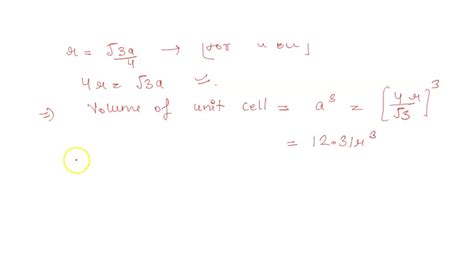 r = √3a/4 → [for
4r = √3a
⇒ Volume of unit cell = a³ = [4r/√3]³
= 12.31r³